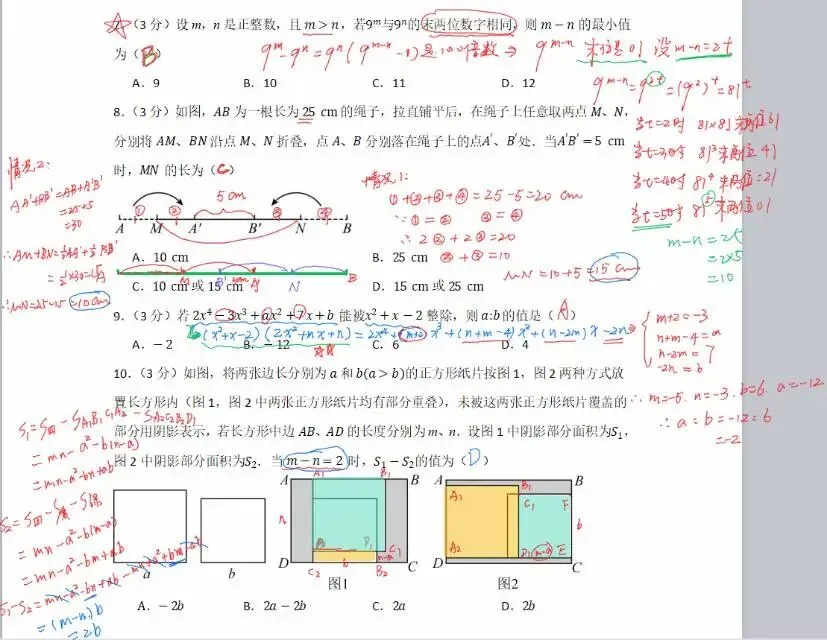 7.（3 分）设 m，n 是正整数，且 m＞n，若9ᵐ与9ⁿ的末两位数字相同，则 m－n 的最小值
为（B）
9ᵐ－9ⁿ＝9ⁿ（9ᵐ⁻ⁿ－1）是100倍数⇒9ᵐ⁻ⁿ 末位是01 设 m－n＝2t
A．9 B．10 C．11 D．12
9ᵐ⁻ⁿ＝9²ᵗ＝(9²)ᵗ＝81ᵗ
当t＝2时 81×81末两位61
当t＝3时 81³末两位41
当t＝4时 81⁴末两位21
当t＝5时 81⁵末两位01
m－n＝2t
＝2×5
＝10
8.（3 分）如图，AB 为一根长为 25 cm 的绳子，拉直铺平后，在绳子上任意取两点 M、N，
分别将 AM、BN 沿点 M、N 折叠，点 A、B 分别落在绳子上的点A′、B′处．当A′B′＝5 cm
时，MN 的长为（C）
情况2：
AA′+BB′＝AB+A′B′
＝25+5
＝30
∴AM+BN＝½AA′+½BB′
＝½×30＝15
∴MN＝25－15＝10cm
5 cm
① ② ③ ④
A M A′ B′ N B
情况1：
①+②+③+④＝25－5＝20 cm
∵①＝② ③＝④
∴2②+2③＝20
②+③＝10
MN＝10+5＝15 cm
A．10 cm B．25 cm
M B′ A′ N B
C．10 cm 或 15 cm D．15 cm 或 25 cm
9.（3 分）若 2x⁴－3x³＋ax²＋7x＋b 能被x²＋x－2 整除，则 a:b的值是（A）
(x²+x－2)(2x²+mx+n)＝2x⁴+(m+2)x³+(n+m－4)x²+(n－2m)x－2n⇒
m+2＝－3
n+m－4＝a
n－2m＝7
－2n＝b
A．－2 B．－12 C．6 D．4
∴m＝－5．n＝－3．b＝6．a＝－12
∴a：b＝－12：6
＝－2
10.（3 分）如图，将两张边长分别为 a 和 b(a＞b)的正方形纸片按图 1，图 2 两种方式放
置长方形内（图 1，图 2 中两张正方形纸片均有部分重叠），未被这两张正方形纸片覆盖的
部分用阴影表示，若长方形中边 AB、AD 的长度分别为 m、n．设图 1 中阴影部分面积为S₁，
图 2 中阴影部分面积为S₂．当 m－n＝2 时，S₁－S₂的值为（D）
＝mn－a²－b(n－a)
＝mn－a²－bn+ab
＝mn－a²－b(m－a)
＝mn－a²－bm+ab
S₁－S₂＝mn－a²－bn+ab－mn+a²+bm－ab
＝(m－n)b
＝2b
a b
A A₁ B₁ B
n
D₁ C₁
b
D C₂ B₂ C
图1
A B
A₁ C₁ F
b
A₂ D₁ m－a E
D C
图2
A．－2b B．2a－2b C．2a D．2b